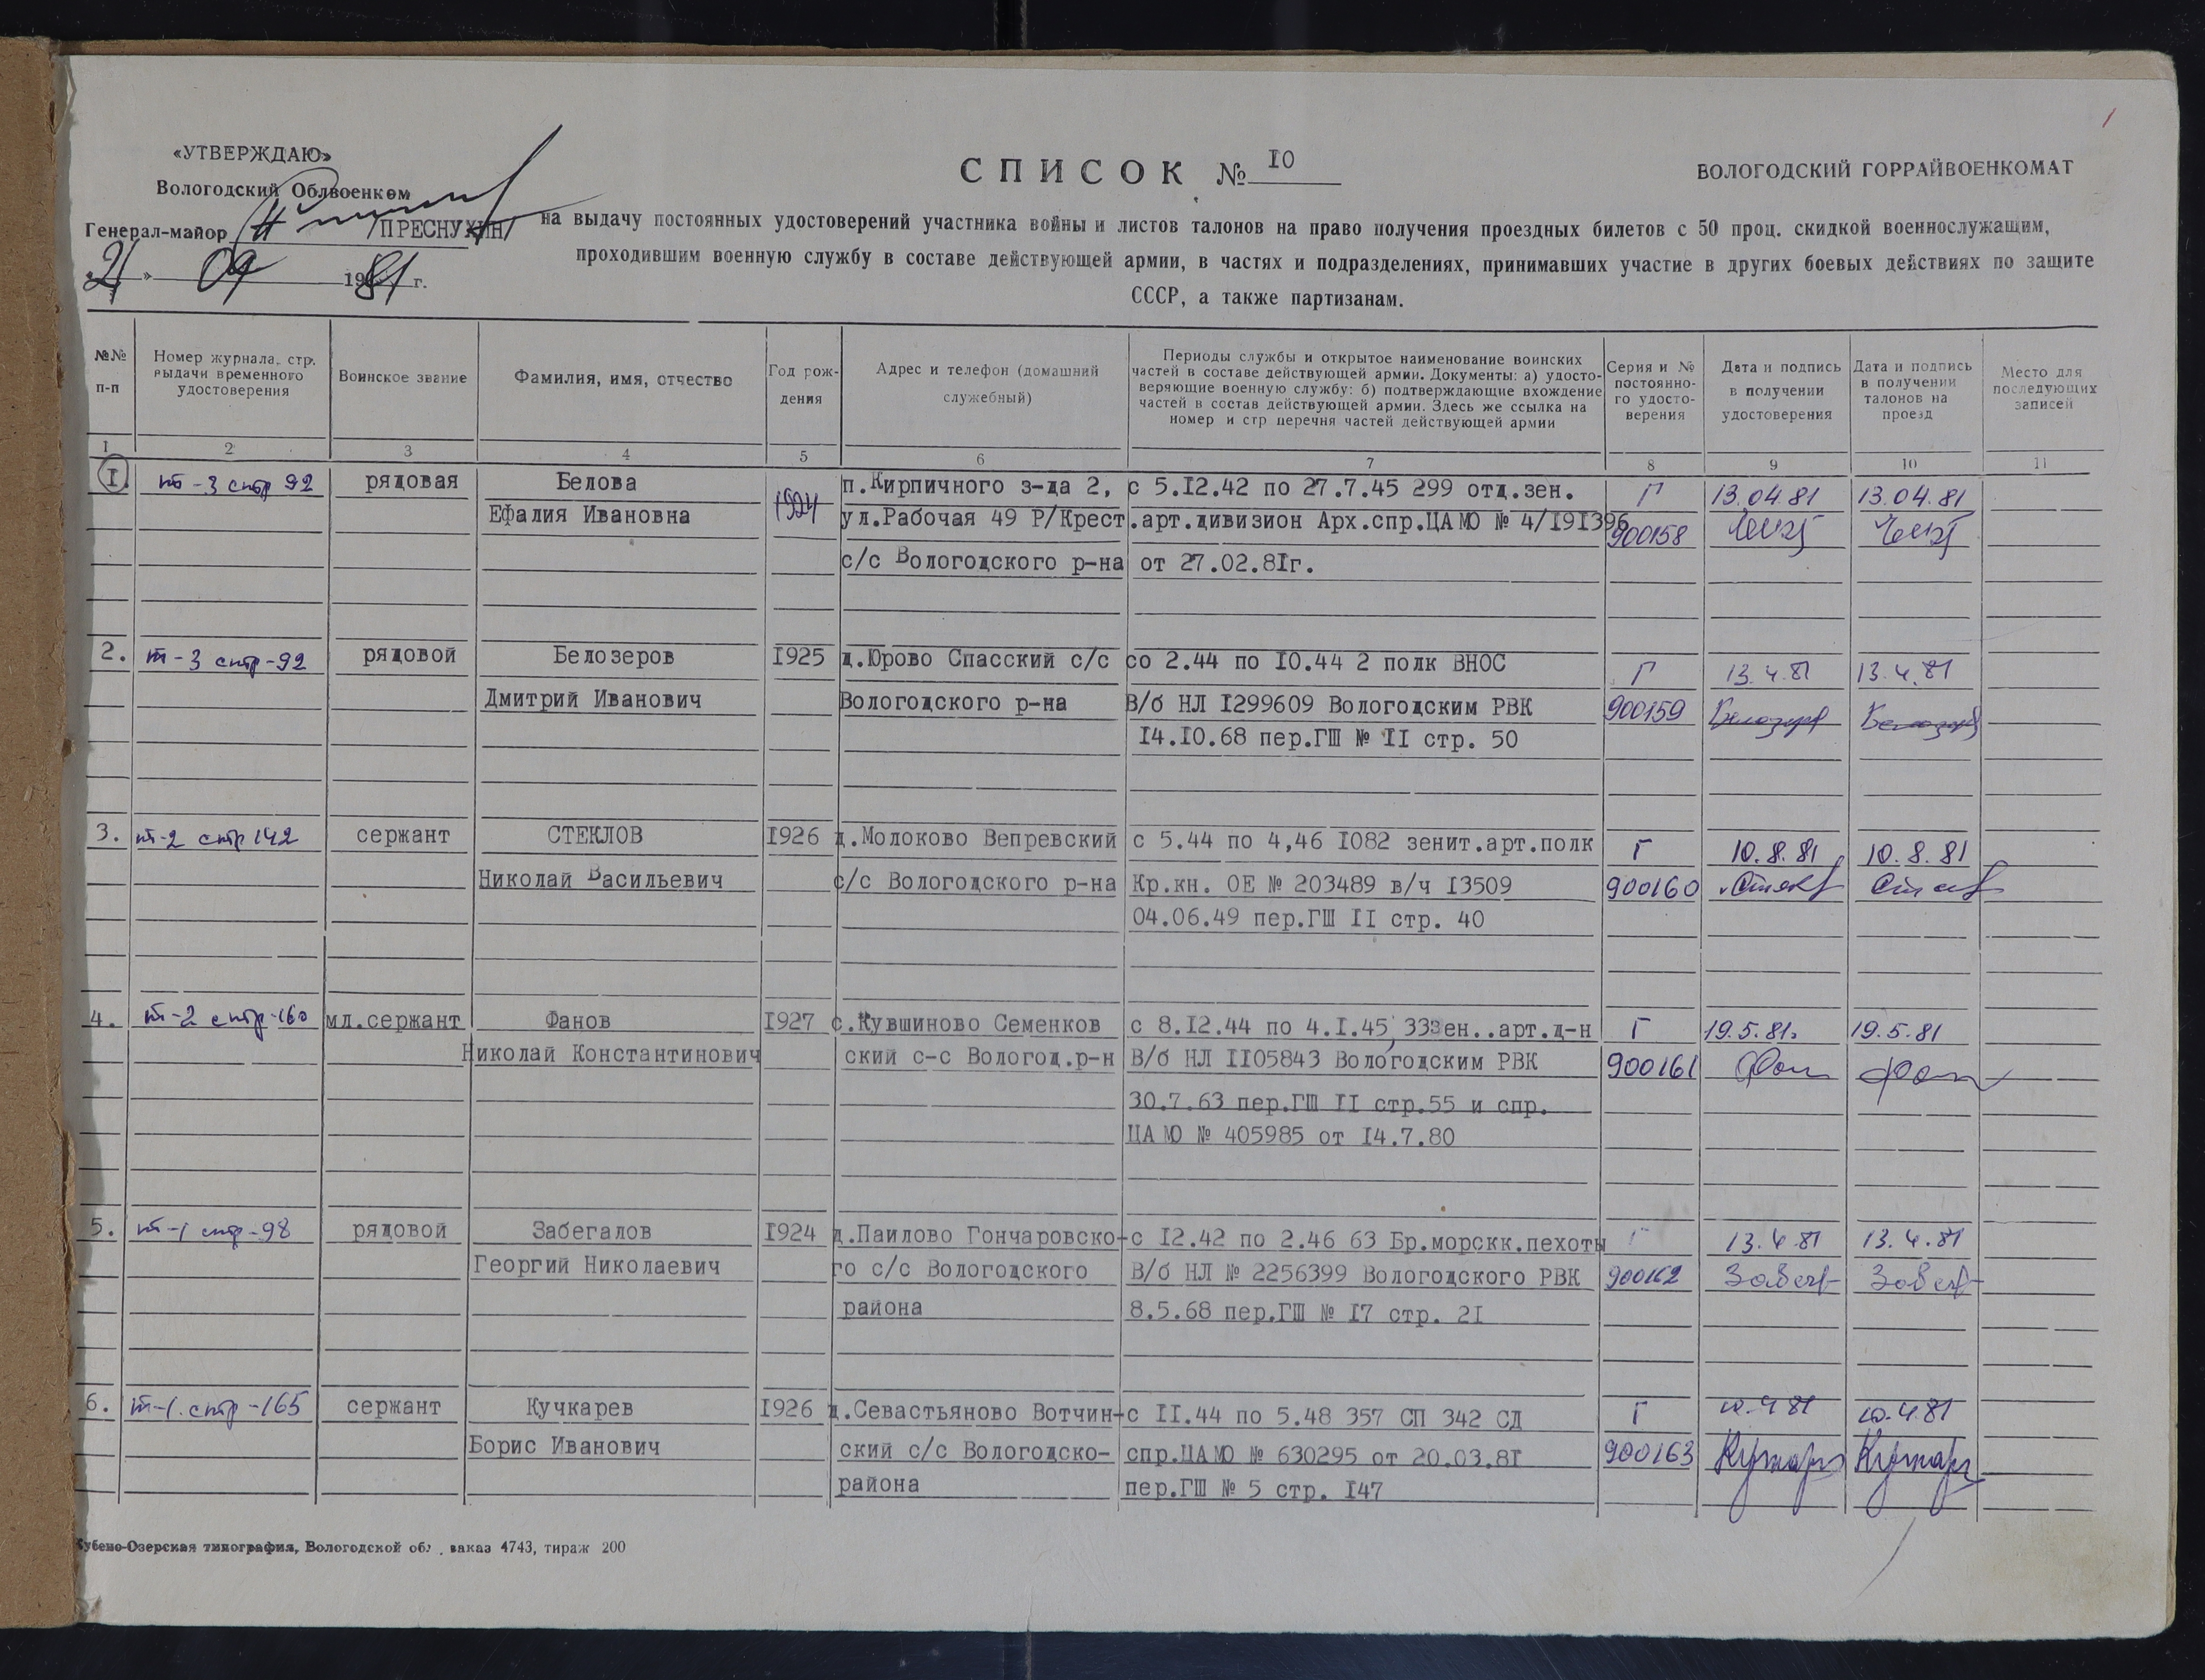 1
«УТВЕРЖДАЮ»
Вологодский Облвоенком
Генерал-майор /ПРЕСНУХИН/
21 » 04 1981 г.
СПИСОК № 10
ВОЛОГОДСКИЙ ГОРРАЙВОЕНКОМАТ
на выдачу постоянных удостоверений участника войны и листов талонов на право получения проездных билетов с 50 проц. скидкой военнослужащим,
проходившим военную службу в составе действующей армии, в частях и подразделениях, принимавших участие в других боевых действиях по защите
СССР, а также партизанам.
№№
п-п
Номер журнала, стр.
выдачи временного
удостоверения
Воинское звание
Фамилия, имя, отчество
Год рож-
дения
Адрес и телефон (домашний
служебный)
Периоды службы и открытое наименование воинских
частей в составе действующей армии. Документы: а) удосто-
веряющие военную службу: б) подтверждающие вхождение
частей в состав действующей армии. Здесь же ссылка на
номер и стр перечня частей действующей армии
Серия и №
постоянно-
го удосто-
верения
Дата и подпись
в получении
удостоверения
Дата и подпись
в получении
талонов на
проезд
Место для
последующих
записей
1 2 3 4 5 6 7 8 9 10 11
I. т-3 стр 92 рядовая Белова 1924 п.Кирпичного з-да 2, с 5.I2.42 по 27.7.45 299 отд.зен. Г 13.04.81 13.04.81
Ефалия Ивановна ул.Рабочая 49 Р/Крест.арт.дивизион Арх.спр.ЦАМО № 4/I9I396 900158
с/с Вологодского р-на от 27.02.8Iг.
2. т-3 стр-92 рядовой Белозеров I925 д.Юрово Спасский с/с со 2.44 по I0.44 2 полк ВНОС Г 13.4.81 13.4.81
Дмитрий Иванович Вологодского р-на В/б НЛ I299609 Вологодским РВК 900159
I4.I0.68 пер.ГШ № II стр. 50
3. т-2 стр 142 сержант СТЕКЛОВ I926 д.Молоково Вепревский с 5.44 по 4,46 I082 зенит.арт.полк Г 10.8.81 10.8.81
Николай Васильевич с/с Вологодского р-на Кр.кн. ОЕ № 203489 в/ч I3509 900160
04.06.49 пер.ГШ II стр. 40
4. т-2 стр-160 мл.сержант Фанов I927 с.Кувшиново Семенков с 8.I2.44 по 4.I.45 33зен..арт.д-н Г 19.5.81. 19.5.81
Николай Константинович ский с-с Вологод.р-н В/б НЛ II05843 Вологодским РВК 900161
30.7.63 пер.ГШ II стр.55 и спр.
ЦАМО № 405985 от I4.7.80
5. т-1 стр-98 рядовой Забегалов I924 д.Паилово Гончаровско-с I2.42 по 2.46 63 Бр.морскк.пехоты Г 13.4.81 13.4.81
Георгий Николаевич го с/с Вологодского В/б НЛ № 2256399 Вологодского РВК 900162
района 8.5.68 пер.ГШ № I7 стр. 2I
6. т-1. стр-165 сержант Кучкарев I926 д.Севастьяново Вотчин-с II.44 по 5.48 357 СП 342 СД Г 10.4.81 10.4.81
Борис Иванович ский с/с Вологодско- спр.ЦАМО № 630295 от 20.03.8I 900163
района пер.ГШ № 5 стр. I47
Кубено-Озерская типография, Вологодской обл. заказ 4743, тираж 200